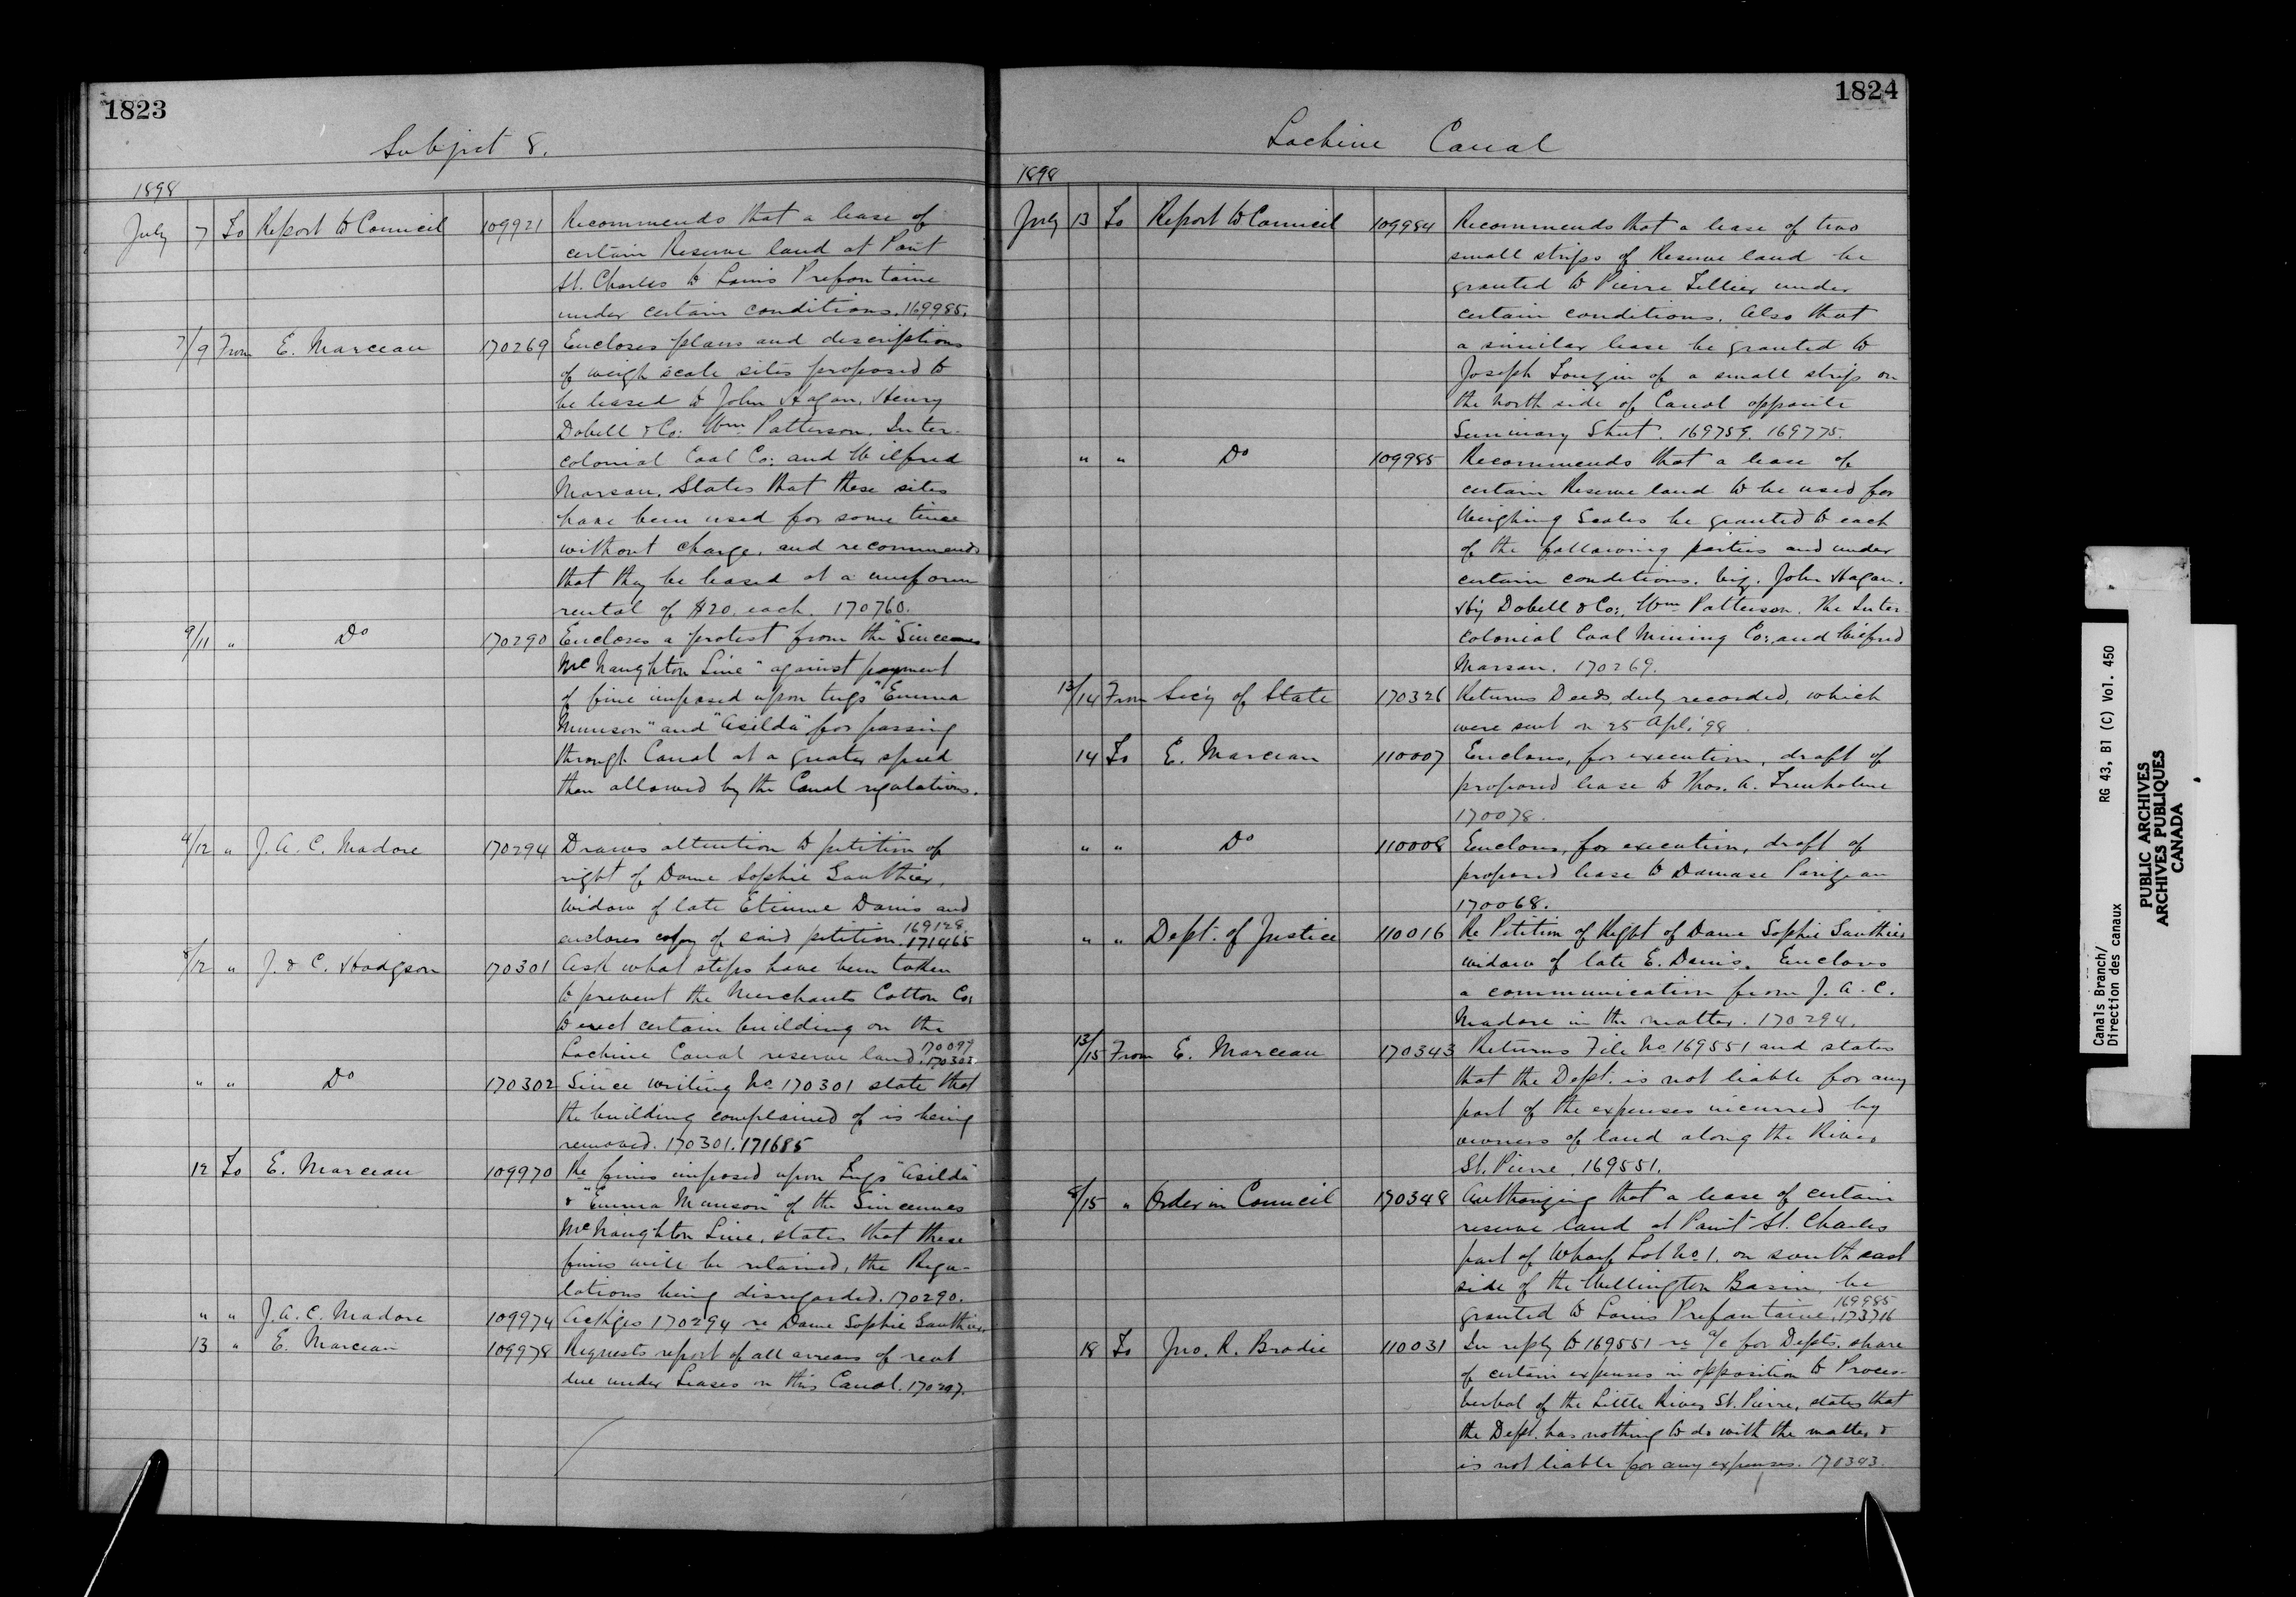 1823
Subject 8.
1898
July 7 To Report to Council 109921 Recommends that a lease of
certain Reserve land at Point
St. Charles to Louis Prefontaine
under certain conditions. 169985.
7/9 From E. Marceau 170269 Encloses plans and descriptions
of weigh scale sites proposed to
be leased to John Hagan, Henry
Dobell & Co: Wm. Patterson, Inter-
colonial Coal Co: and Wilfred
Marsan. States that these sites
have been used for some time
without charge, and recommends
that they be leased at a uniform
rental of $20. each. 170760.
9/11 " Do 170290 Encloses a protest from the "Sincennes
McNaughton Line" against payment
of fine imposed upon tugs "Emma
Munson" and "Asilda" for passing
through Canal at a greater speed
than allowed by the Canal regulations.
9/12 " J. A. C. Madore 170294 Draws attention to petition of
right of Dame Sophie Gauthier,
widow of late Etienne Danis and
169128.
encloses copy of said petition. 171465
8/12 " J. & C. Hodgson 170301 Ask what steps have been taken
to prevent the Merchants Cotton Co:
to erect certain building on the
170099
Lachine Canal reserve land. 170303.
" " Do 170302 Since writing No 170301 state that
the building complained of is being
removed. 170301. 171685
12 To E. Marceau 109970 Re fines imposed upon Tugs "Asilda"
& "Emma Munson" of the Sincennes
McNaughton Line, states that these
fines will be retained, the Regu-
lations being disregarded. 170290.
" " J. A. C. Madore 109974 Ackges 170294 re Dame Sophie Gauthier.
13 " E. Marceau 109978 Requests report of all arrears of rent
due under Leases on this Canal. 170297.
1824
Lachine Canal
1898
July 13 To Report to Council 109984 Recommends that a lease of two
small strips of Reserve land be
granted to Pierre Tellier under
certain conditions. Also that
a similar lease be granted to
Joseph Longin of a small strip on
the north side of Canal opposite
Seminary Street. 169759. 169775.
" " Do 109985 Recommends that a lease of
certain Reserve land to be used for
Weighing Scales be granted to each
of the following parties and under
certain conditions. Viz. John Hagan.
Hy Dobell & Co:, Wm Patterson. The Inter-
colonial Coal Mining Co: and Wilfred
Marsan. 170269.
13/14 From Sec'y of State 170326 Returns Deeds, duly recorded, which
were sent on 25 Apl. '98.
14 To E. Marceau 110007 Encloses, for execution, draft of
proposed lease to Thos. A. Trenholme
170078.
" " Do 110008 Encloses, for execution, draft of
proposed lease to Damase Parizeau
170068.
" " Dept. of Justice 110016 Re Petition of Right of Dame Sophie Gauthier
widow of late E. Danis. Encloses
a communication from J. A. C.
Madore in the matter. 170294.
13/15 From E. Marceau 170343 Returns File No 169551 and states
that the Dept. is not liable for any
part of the expenses incurred by
owners of land along the River
St. Pierre. 169551.
8/15 " Order in Council 170348 Authorizing that a lease of certain
reserve land at Point St. Charles
part of Wharf Lot No 1. on south east
side of the Wellington Basin, be
169985
granted to Louis Prefontaine. 173716
18 To Jno. R. Brodie 110031 In reply to 169551 re a/c for Depts. share
of certain expenses in opposition to Proces-
verbal of the Little River St. Pierre, states that
the Dept. has nothing to do with the matter &
is not liable for any expenses. 170343.
Canals Branch/
Direction des canaux
RG 43, B1 (C) Vol. 450
PUBLIC ARCHIVES
ARCHIVES PUBLIQUES
CANADA